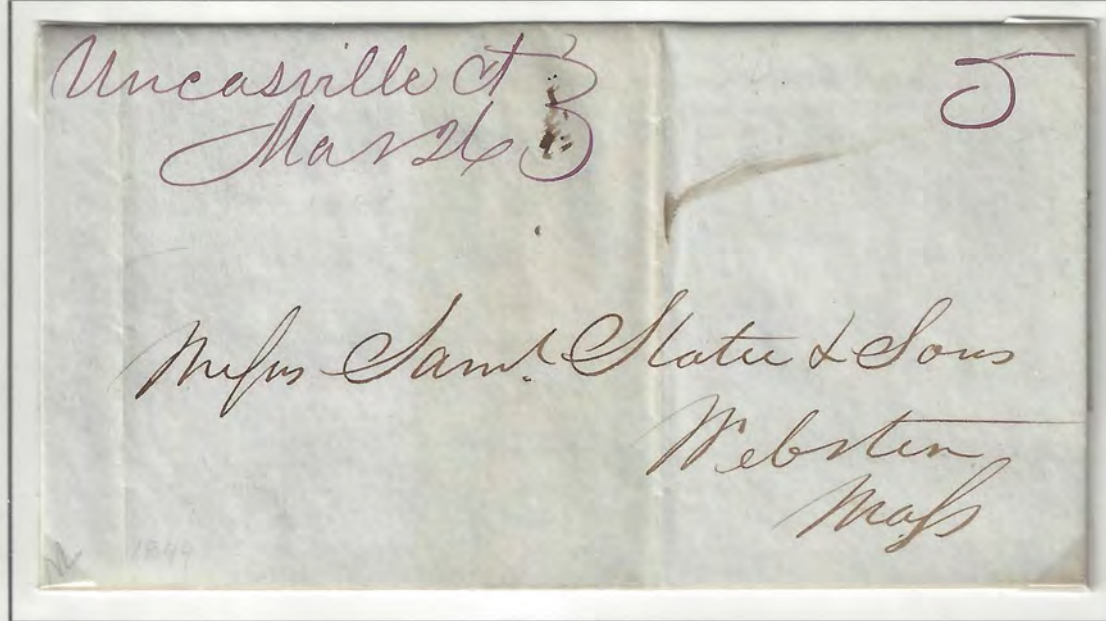 Uncasville Ct
Mar 26
5
Messrs Saml. Slater & Sons
Webster
Mass
1849